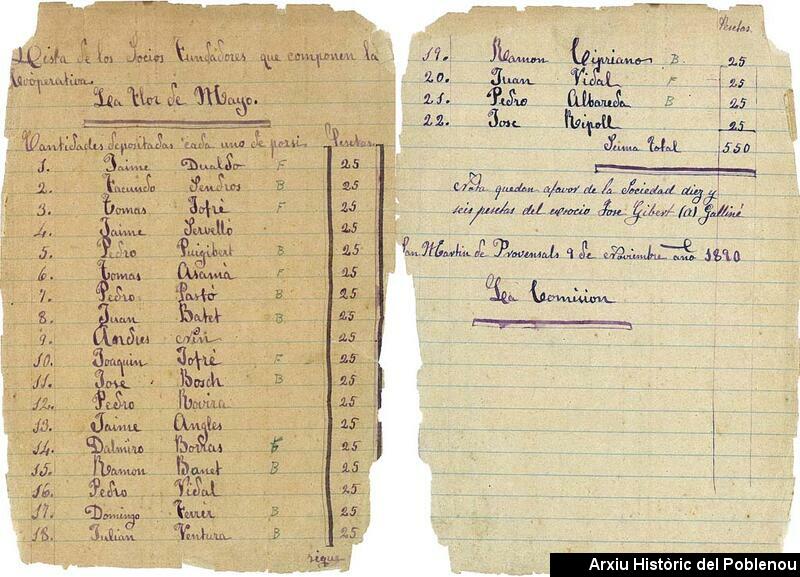 Lista de los Socios Fundadores que componen la
Cooperativa
La Flor de Mayo.
Cantidades depositadas cada uno de porsi Pesetas
1. Jaime Dualdo F 25
2. Facundo Sendros B 25
3. Tomas Jofré F 25
4. Jaime Servelló 25
5. Pedro Puigibert B 25
6. Tomas Asamá F 25
7. Pedro Pastó B 25
8. Juan Batet B 25
9. Andres Nin 25
10. Joaquin Jofré F 25
11. Jose Bosch B 25
12. Pedro Rovira 25
13. Jaime Angles 25
14. Dalmiro Borras F 25
15. Ramon Banet B 25
16. Pedro Vidal 25
17. Domingo Ferrér B 25
18. Julian Ventura B 25
sigue
Pesetas
19. Ramon Cipriano B. 25
20. Juan Vidal F 25
21. Pedro Albareda B 25
22. Jose Ripoll 25
Suma total 550
Nota quedan afavor de la Sociedad diez y
seis pesetas del exsocio Jose Gibert (a) Galliné
San Martin de Provensals 9 de Noviembre año 1890
La Comision
Arxiu Històric del Poblenou